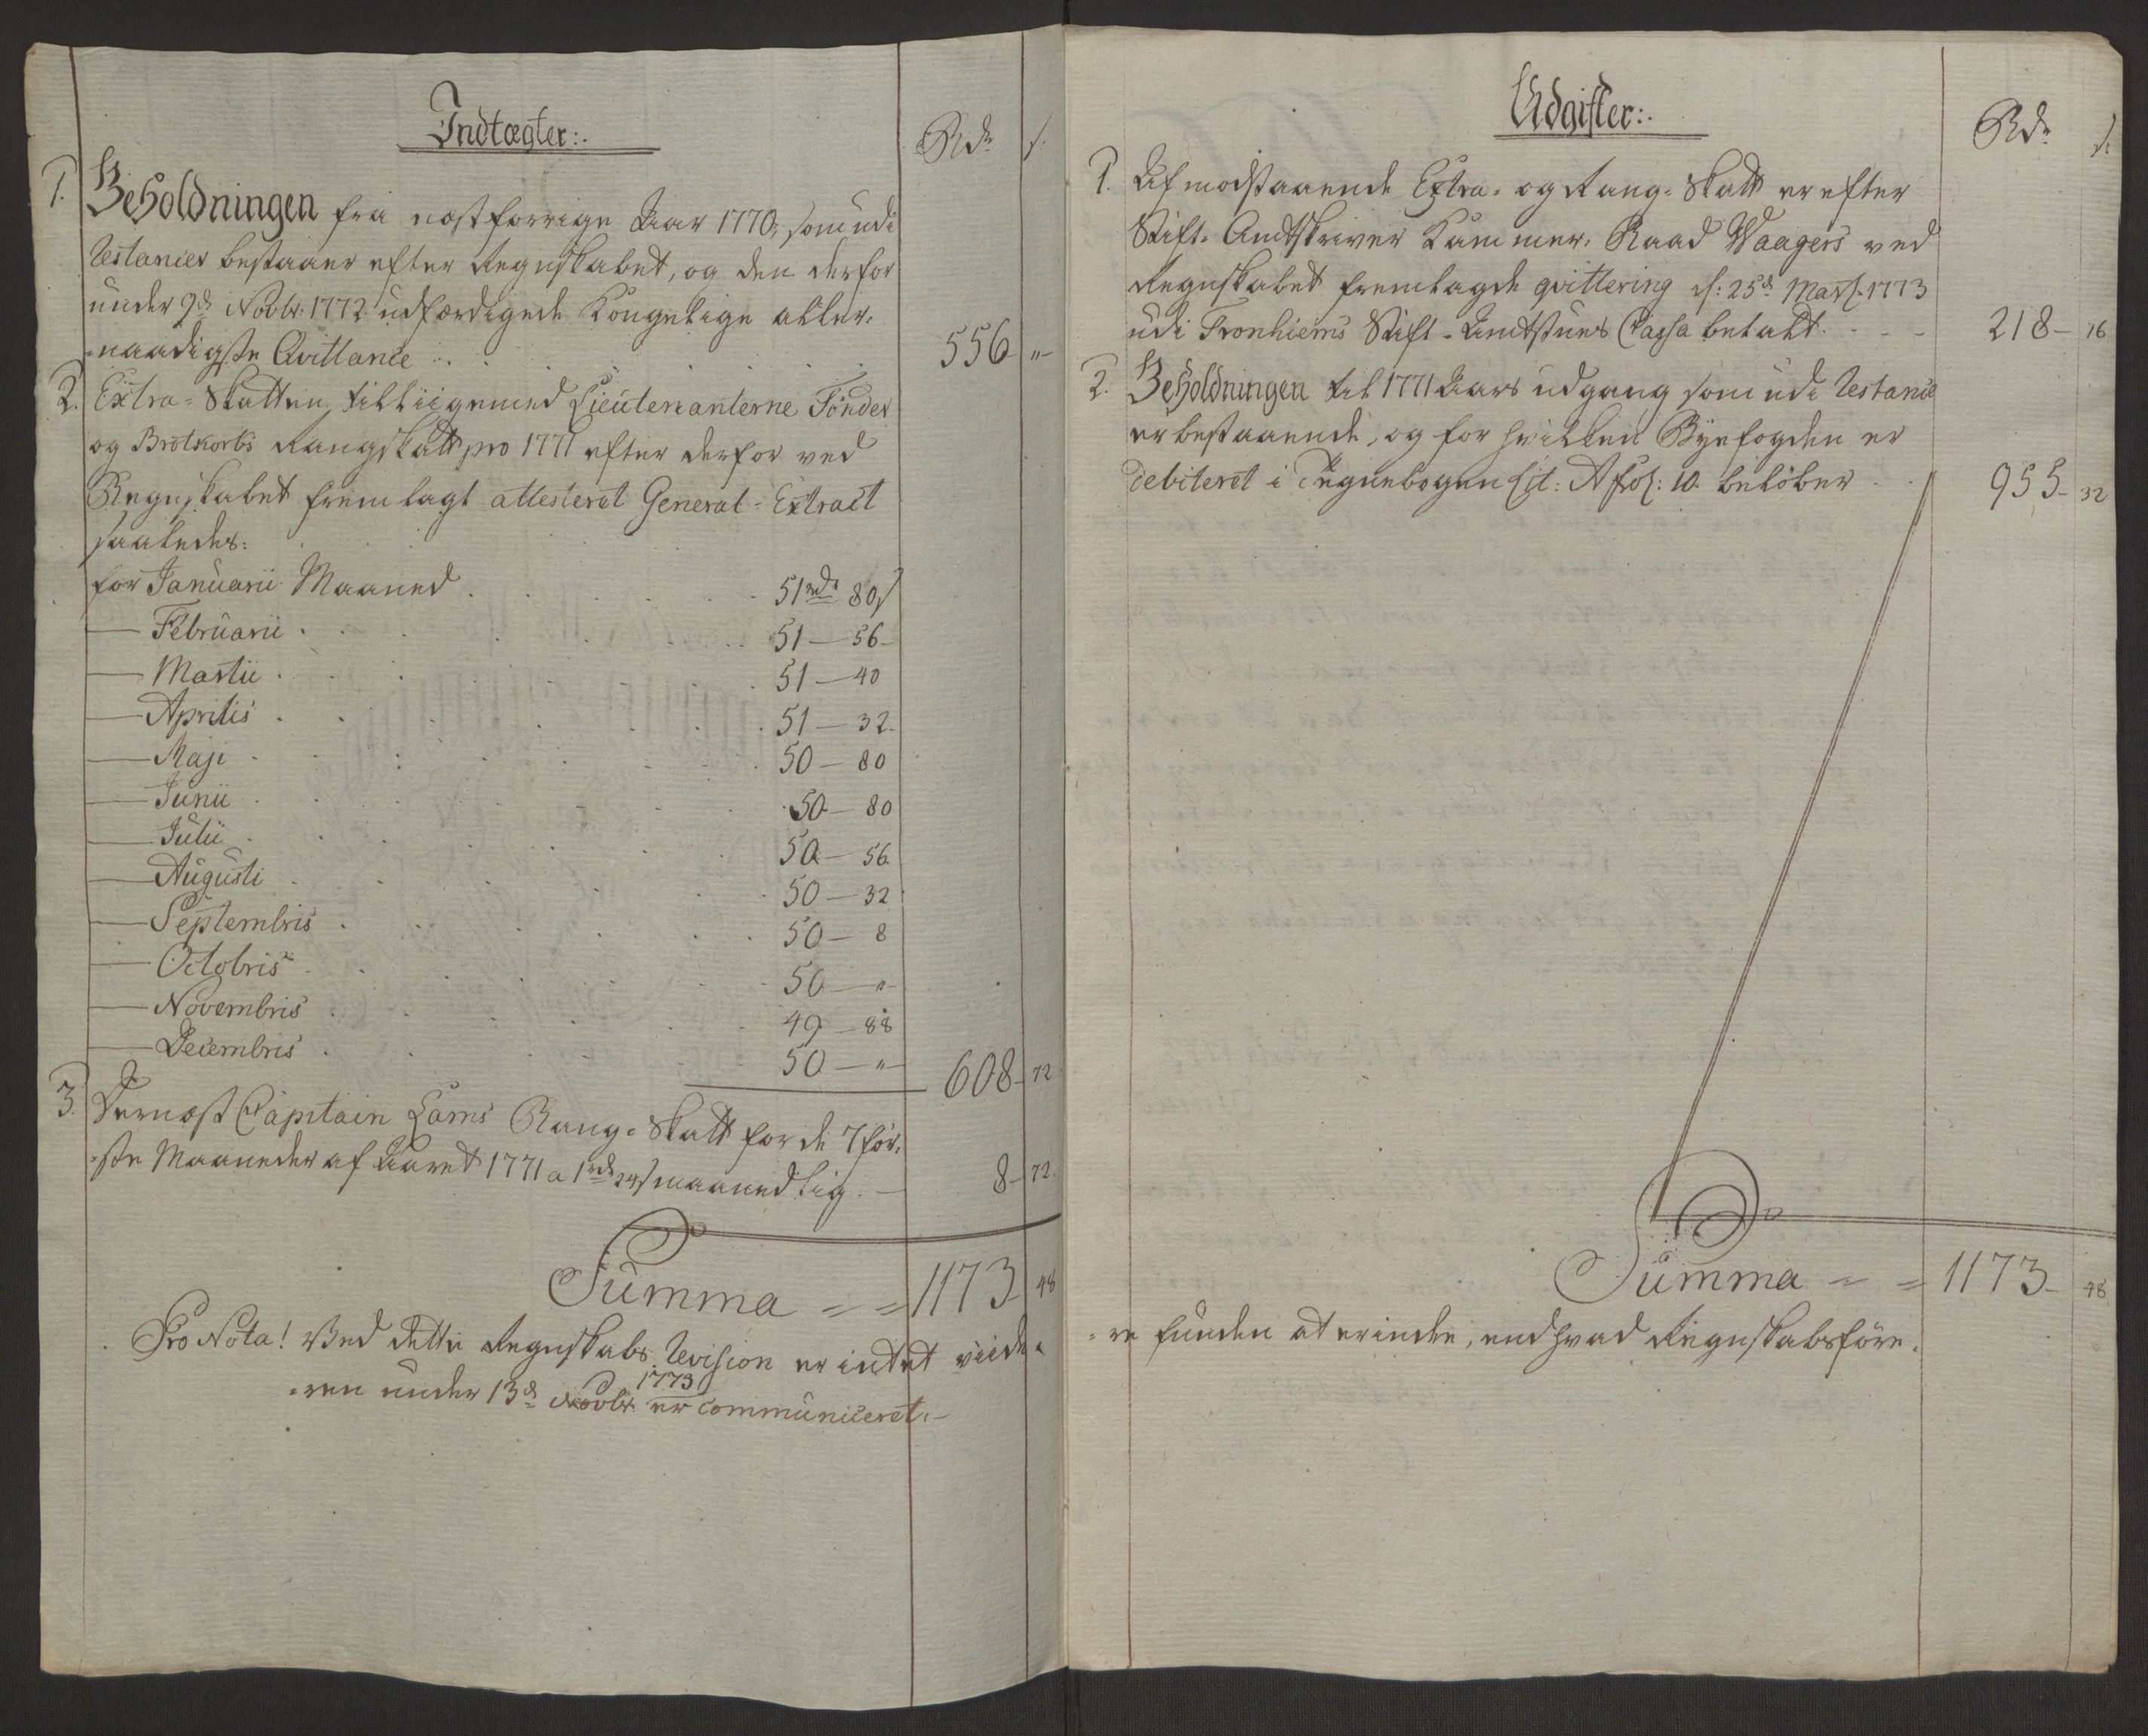 Indtægter:.
Rdr s.
1. Beholdningen fra næstforrige Aar 1770, som udi
Restancer bestaaer efter Regnskabet, og den derfor
under 9d Novbr. 1772 udfærdigede Kongelige aller-
-naadigste Qvittance . . 556 "-
2. Extra-Skatten tilliigemed Lieutenanterne Tönder
og Brotkorbs Rangskatt pro 1771 efter derfor ved
Regnskabet fremlagt attesteret General-Extract
saaledes:
for Januarii Maaned . . . 51rdr 80s
— Februarii . . . 51 — 56 -
— Martii . . . 51 — 40
— Aprilis . . . 51 — 32.
— Maji . . . 50 — 80
— Junii . . . 50 — 80
— Julii . . . 50 — 56
— Augusti . . . 50 — 32
— Septembris . . . 50 — 8
— Octobris . . . 50 — "-
— Novembris . . . 49 — 88
— Decembris . . . 50 — "- 608 - 72
3. Dernæst Capitain Lams Rang-Skatt for de 7 för-
-ste Maaneder af Aaret 1771 a 1rdr 24s maanedlig. — 8 - 72.
Summa = = 1173 - 48
Pro Nota! Ved dette Regnskabs Revision er intet viide-
1773
-ren under 13d Novbr. er communiceret.-
Udgifter:.
Rdr s.
1. Af modstaaende Extra- og Rang-Skatt er efter
Stift-Amtskriver Kammer-Raad Waagers ved
Regnskabet fremlagde qvittering d: 25d Marti 1773
udi Tronhiems Stift-Amtstues Cassa betalt. - - 218 — 16
2. Beholdningen til 1771 Aars udgang som udi Restance
er bestaaende, og for hvilken Byefogden er
debiteret i Tegnebogen Lit: A fol: 10. belöber . . 955 - 32
Summa = = 1173 - 48
-re funden at erindre, end hvad Regnskabsföre-